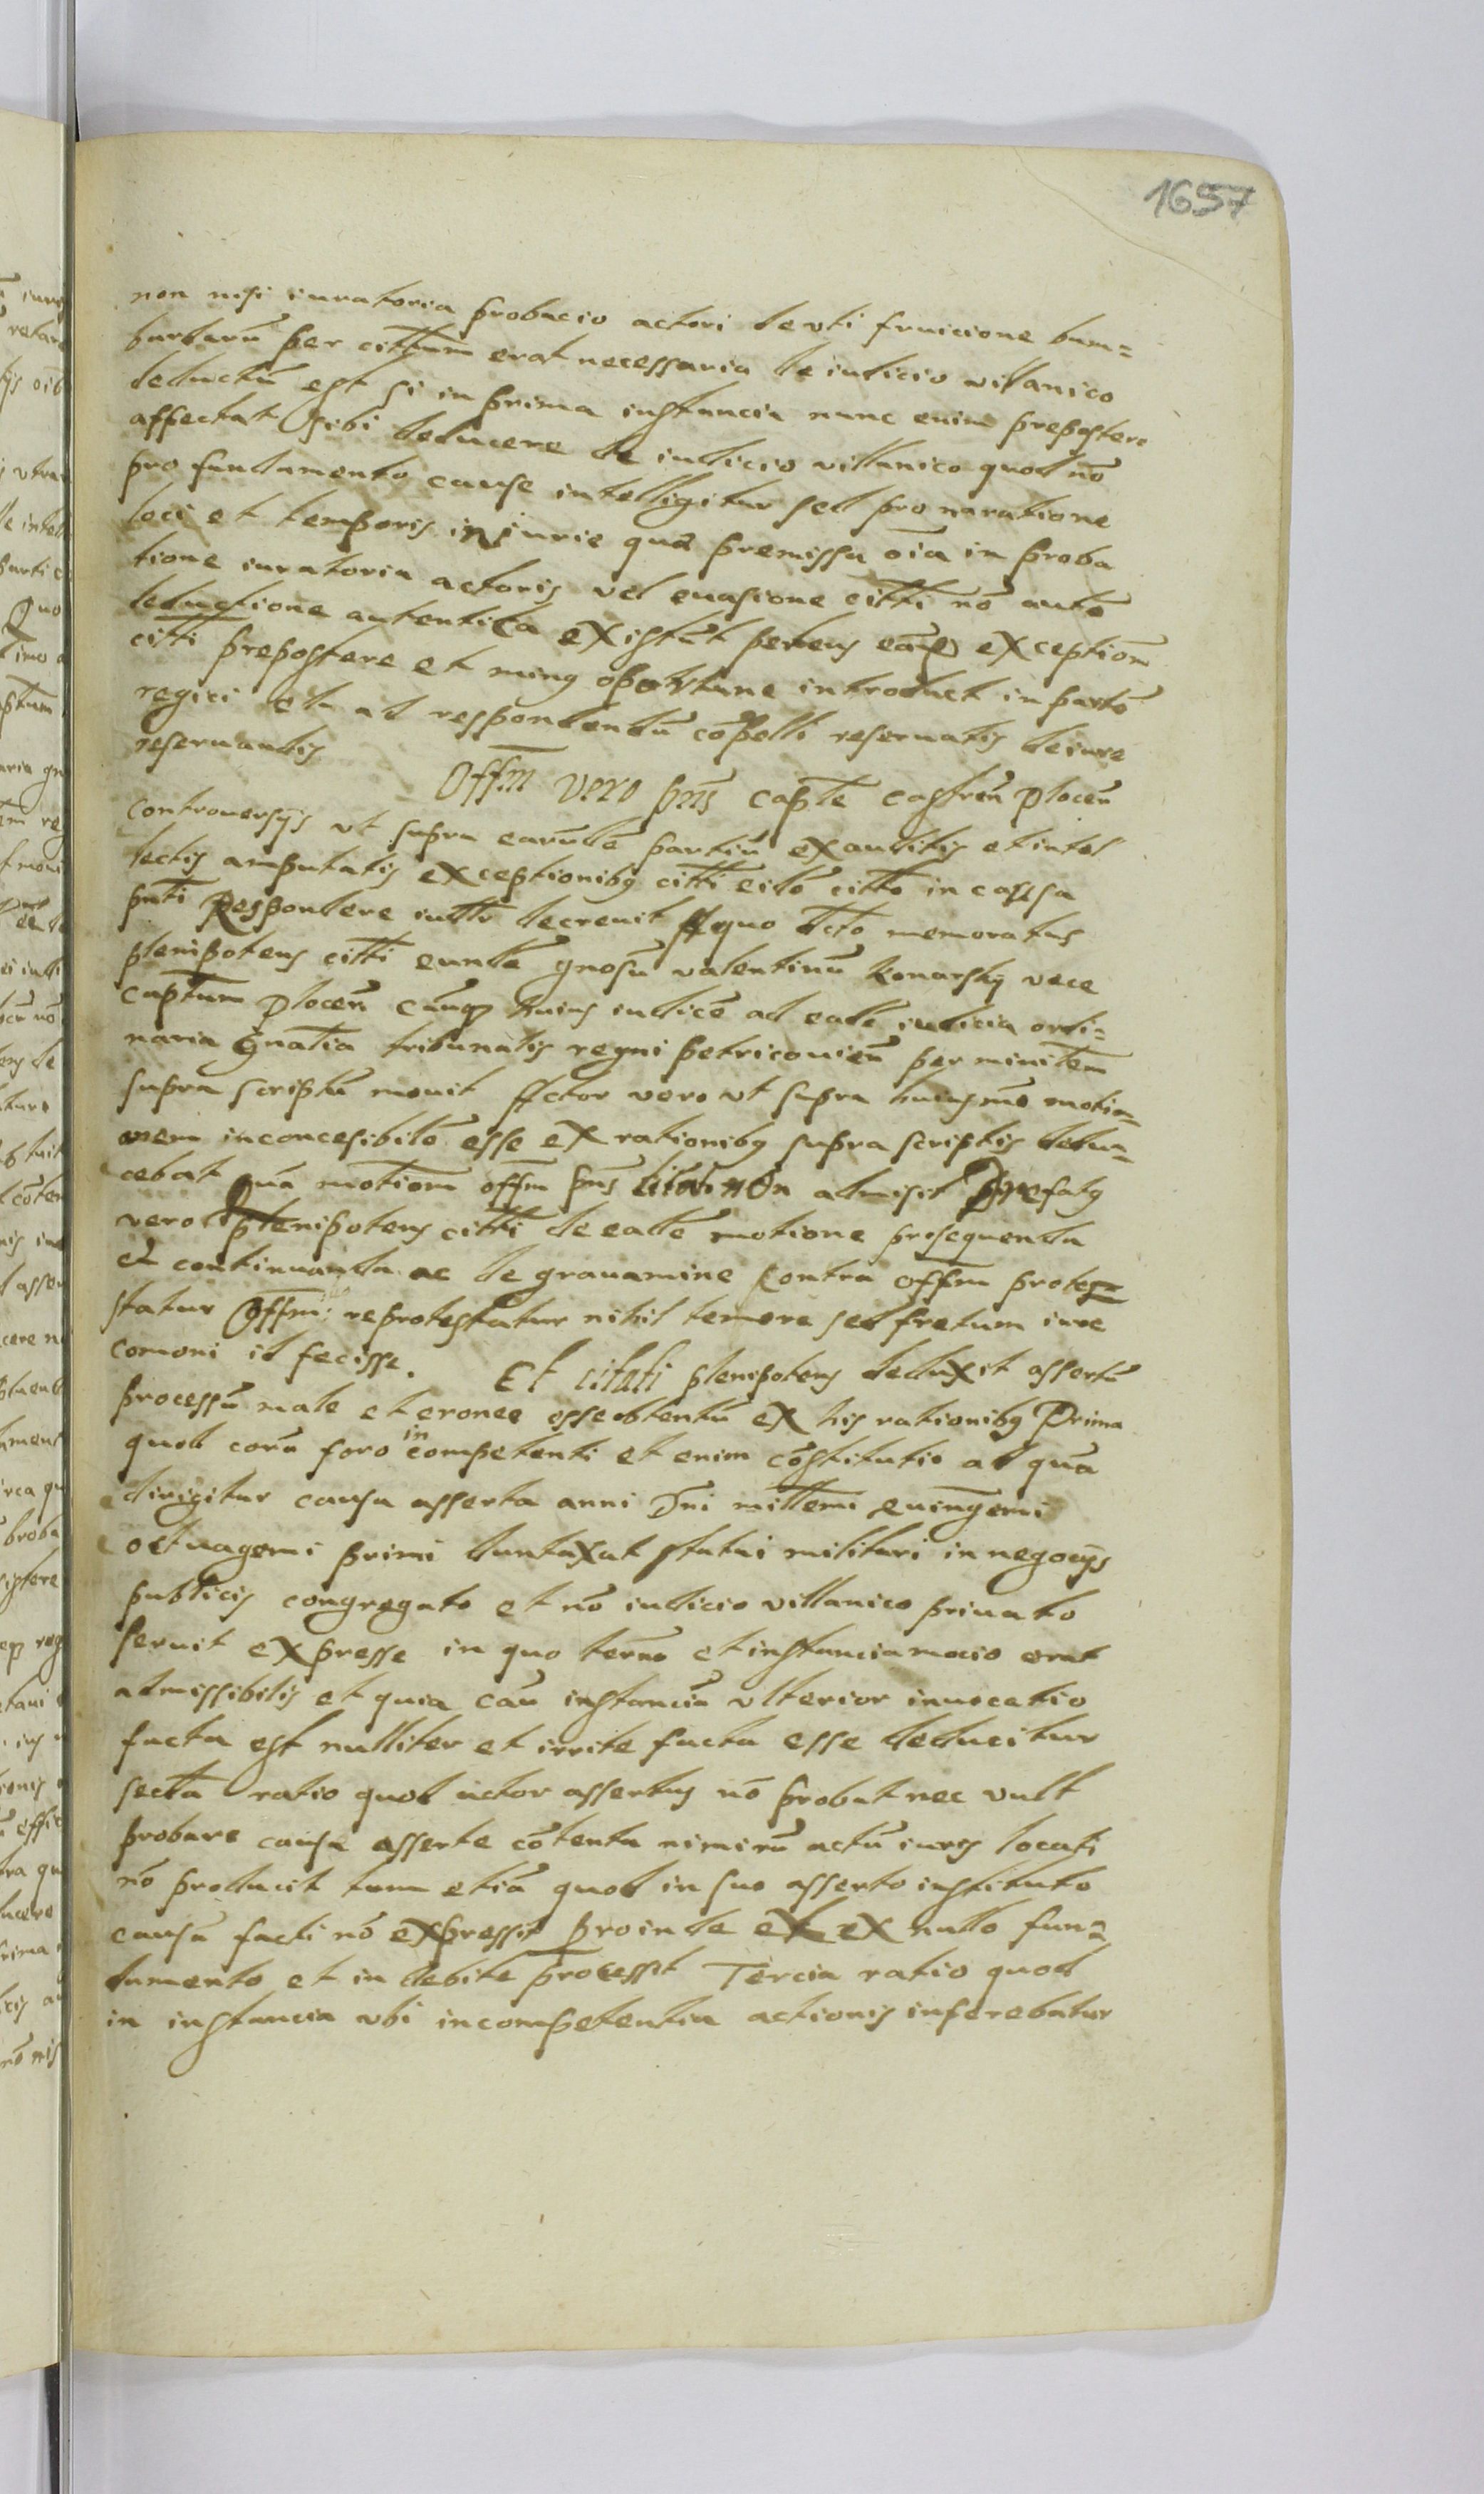 1657
non nisi iuratoria probacio actori de vti fruicione bom=
bardarũ per cittum erat necessaria de iudicio villanico
deductũ est si in prima instancia nunc enim prepostere
affectat sibi deducere de iudicio villanico quod nõ
pro fundamento cause intelligitur sed pro naratione
loci et temporis iniurie quã premissa oĩa in proba
tione iuratoria actoris vel euasione citti nõ autẽ
deductione autentica existũt petens eañd exceptiom
citti prepostere et minus oportune introduct in partẽ
regici et ad respondendũ cõpelli reseruatis de iure
reseruandis Offm vero pñs capte castreñ plocen
controuersijs vt supra earũdẽ partiũ exauditis et intel
lectis amputatis exceptionibq citti eidẽ citto in causa
pñti Respondere iudtr decreuit A quo dcto memoratus
plenipotens citti eundẽ gnosũ valentinũ konarsky vece
captum plocen cũnq huius iudicẽ ad eadẽ iudicia ordi=
naria gñatia tribunalis regni petricouien per minitem
supra scriptũ mouit Actor vero vt supra huiusmo motio=
onem inconcesibilẽ esse ex rationibq supra scriptis dedu=
cebat quã motiom offm pñs litati non admisit Prefatq
vero plenipotens citti de eadẽ motione prosequenda
et continuanda ac de grauamine contra offm protes=
statur Offm reprotestatur nihil temere sed fretum iure
comoni id fecisse. Et citati plenipotens deduxit assertũ
processũ male et eronee esse obtentũ ex his rationibq Prima
quod corã foro incompetenti et enim cõstitutio ad quã
dirigitur causa asserta anni Dni millemi quingemi
octuagemi primi duntaxat statui militari in negocijs
publicis congregato et nõ iudicio villanico priuato
seruit expresse in quo termo et instancia mocio erat
admissibilis et quia caũ instanciã vlterior inuocatio
facta est nulliter et irrite facta esse deducitur
secda ratio quod actor assertus nõ probat nec vult
probare causa asserte cõtenta nimirũ actũ iuris locati
nõ producit tum etiã quod in suo asserto instituto
causã facti nõ expressit proinde ex ex nullo fun=
damento et indebite processit Tercia ratio quod
in instancia vbi incompetentia actionis inferebatur